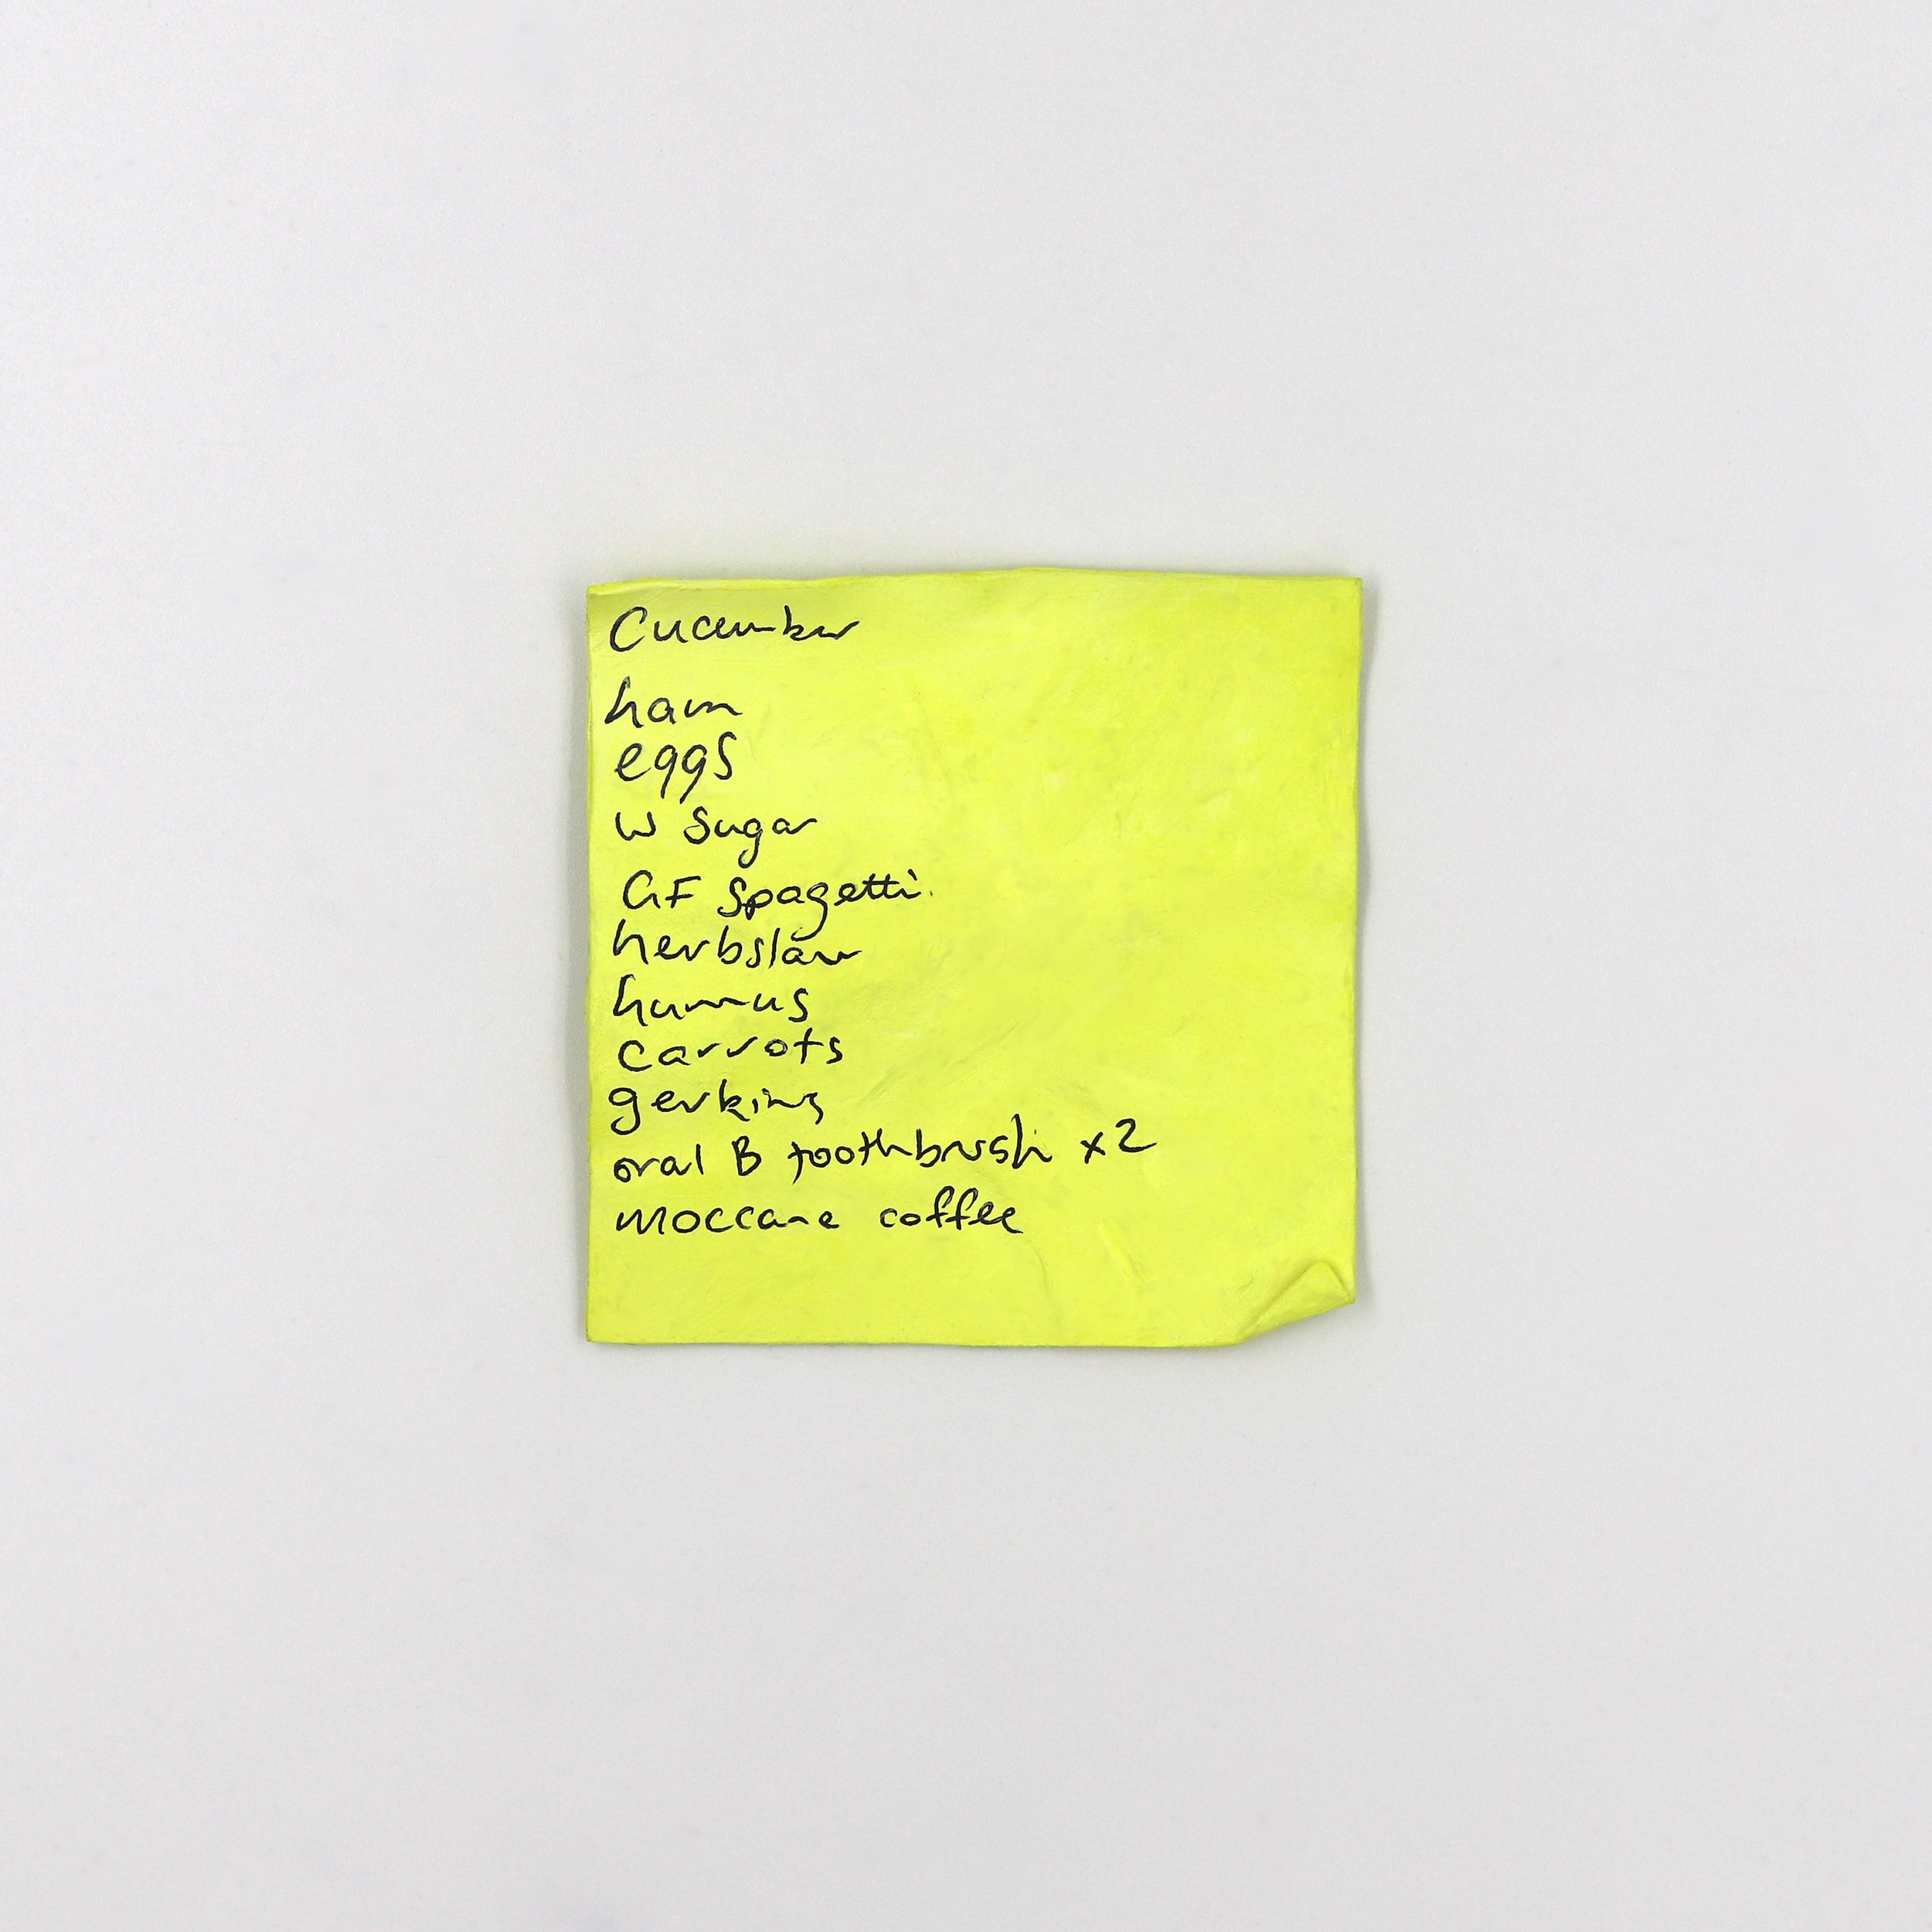 Cucumber
ham
eggs
w sugar
GF Spagetti.
herbslaw
humus
carrots
gerkins
oral B toothbrush x2
moccane coffee